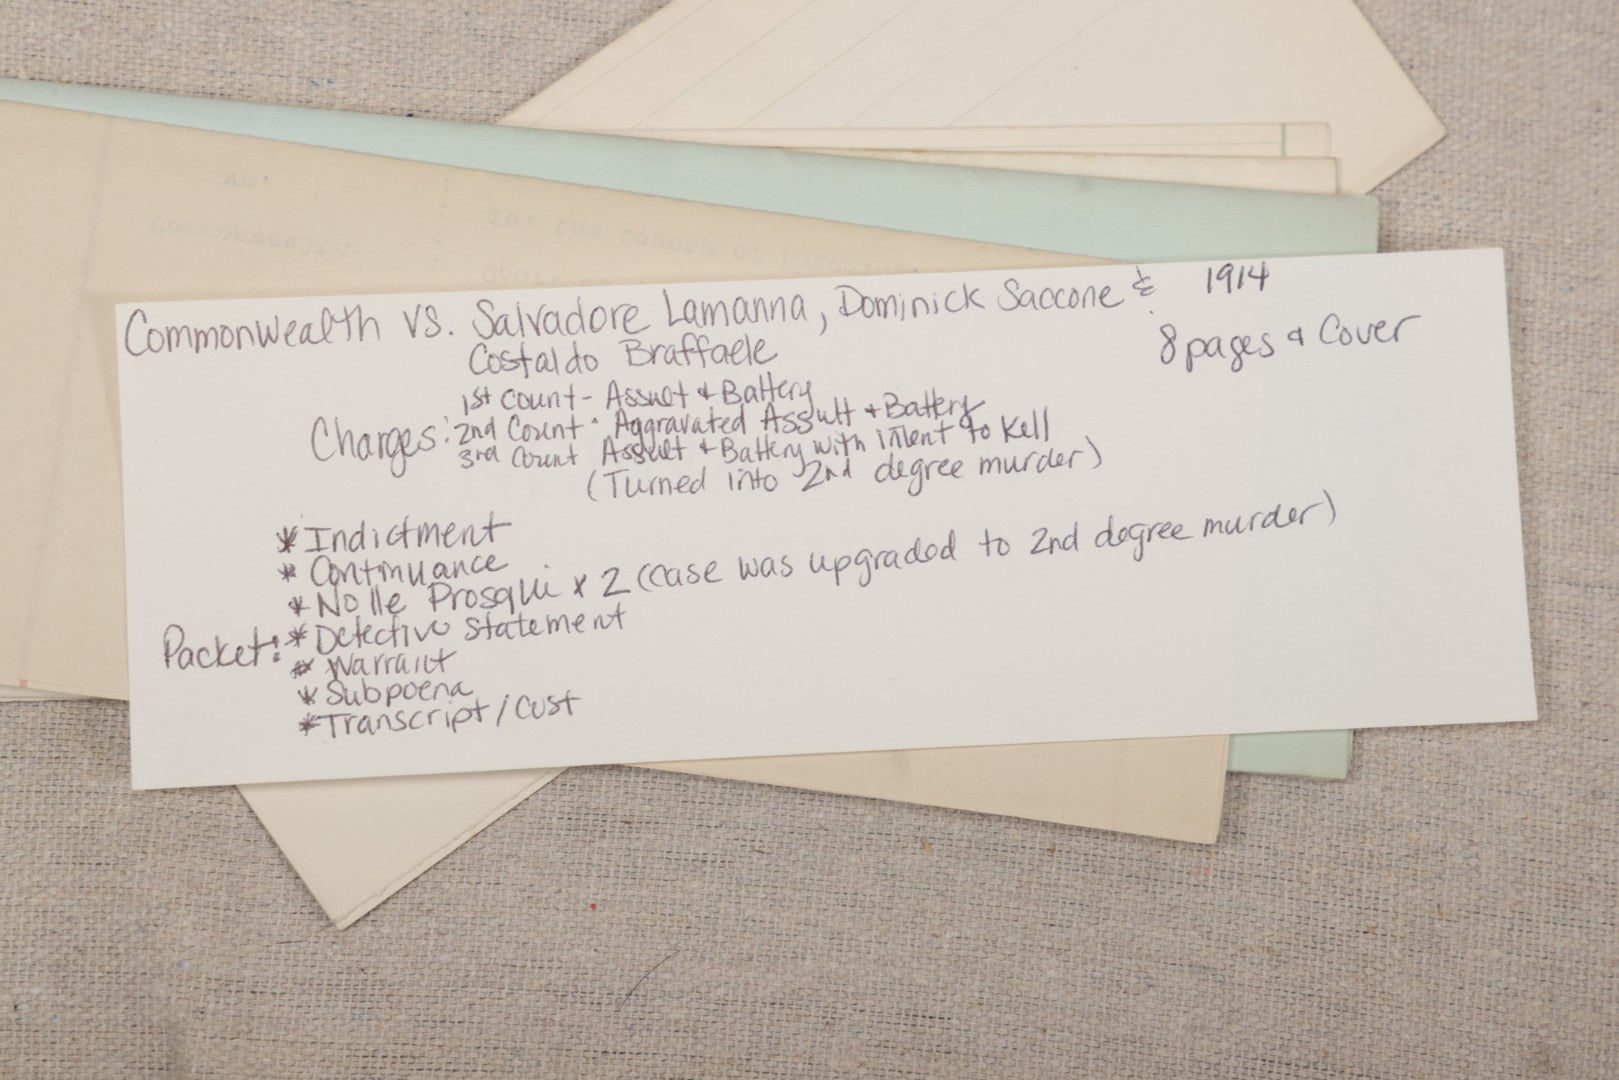 Commonwealth vs. Salvadore Lamanna, Dominick Saccone & 1914
Costaldo Braffaele
8 pages & Cover
1st Count - Assuet & Battery
Charges: 2nd Count - Aggravated Assult & Battery
3rd Count Assuet & Battery with intent to kell
(Turned into 2nd degree murder)
* Indictment
* Continuance
* Nolle Prosqui x 2 (case was upgraded to 2nd degree murder)
Packet: * Detective Statement
* Warrant
* Subpoena
* Transcript / Cust
vs.
Commonwealth
for the County of